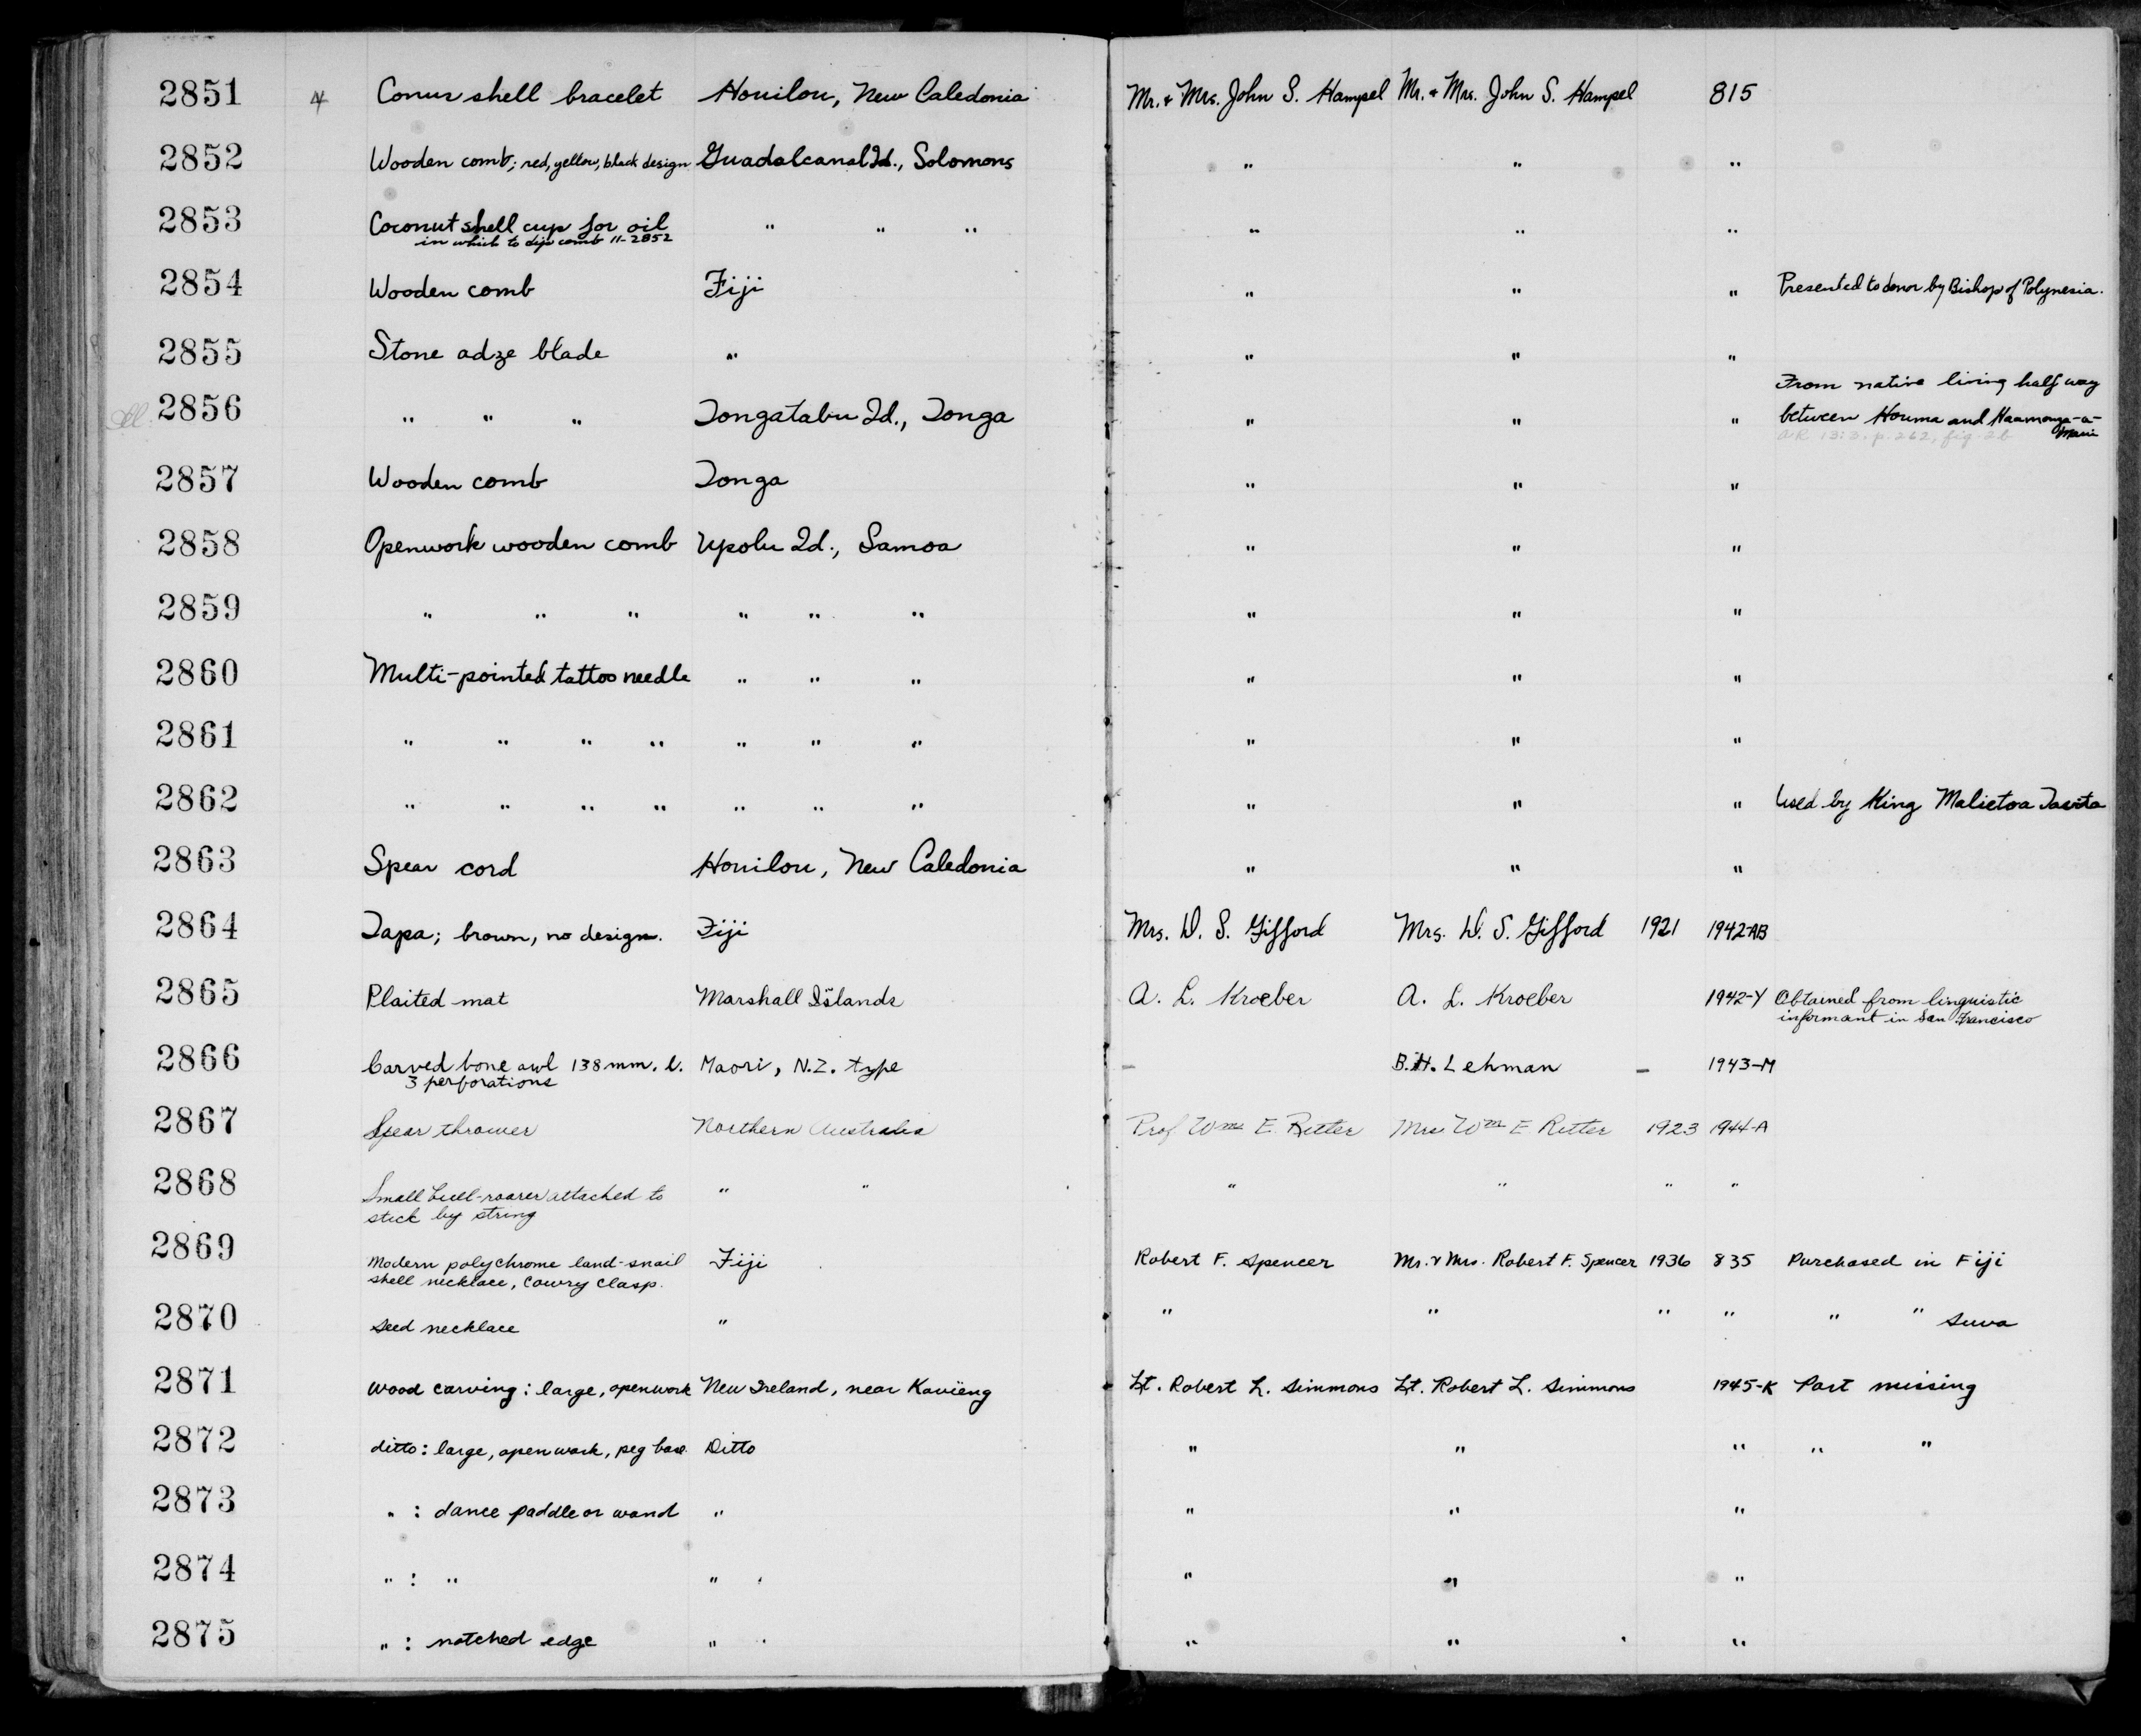 2851 4 Conus shell bracelet Houilou, New Caledonia Mr. & Mrs. John S. Hampel Mr. & Mrs. John S. Hampel 815
2852 Wooden comb; red, yellow, black design Guadalcanal Id., Solomons " " "
2853 Coconut shell cup for oil " " " " " "
in which to dip comb 11-2852
2854 Wooden comb Fiji " " " Presented to donor by Bishop of Polynesia.
2855 Stone adze blade " " " "
From native living half way
2856 " " " Tongatabu Id., Tonga " " " between Houma and Haamonga-a-
Maui
AR 13:3, p. 262, fig. 2b
2857 Wooden comb Tonga " " "
2858 Openwork wooden comb Upolu Id., Samoa " " "
2859 " " " " " " " " "
2860 Multi-pointed tattoo needle " " " " " "
2861 " " " " " " " " " "
2862 " " " " " " " " " " Used by King Malietoa Tavita
2863 Spear cord Houilou, New Caledonia " " "
2864 Tapa; brown, no design. Fiji Mrs. D. S. Gifford Mrs. D. S. Gifford 1921 1942-AB
2865 Plaited mat Marshall Islands A. L. Kroeber A. L. Kroeber 1942-Y Obtained from linguistic
informant in San Francisco
2866 Carved bone awl 138 mm. l. Maori, N.Z. type – B.H. Lehman – 1943-M
3 perforations
2867 Spear thrower Northern Australia Prof Wm E. Ritter Mrs Wm E Ritter 1923 1944-A
2868 Small bull-roarer attached to " " " " " "
stick by string
2869 Modern polychrome land-snail Fiji Robert F. Spencer Mr. & Mrs. Robert F. Spencer 1936 835 Purchased in Fiji
shell necklace, cowry clasp.
2870 Seed necklace " " " " " " " Suva
2871 Wood carving: large, openwork New Ireland, near Kavieng Lt. Robert L. Simmons Lt. Robert L. Simmons 1945-K Part missing
2872 ditto: large, openwork, peg base Ditto " " " " "
2873 " : dance paddle or wand " " " "
2874 " : " " " " "
2875 " : notched edge " " " "